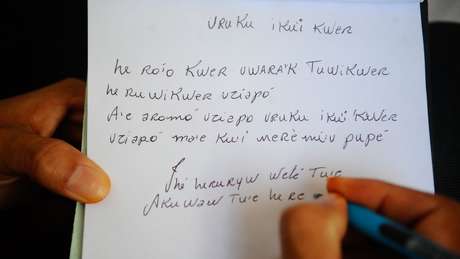 URUKU IKÚ'I KWER
he ROIO KWER UWARA'K TUWIKWER
he RUWIKWER UZIAPÓ
A'e AROMÓ UZIAPO URUKU IKÚ'I KWER
UZIAPÓ MA'E KWI MERÈ MUV PUPÉ
heruryw Weté Tu'e
AKUWAW Tu'e he RE